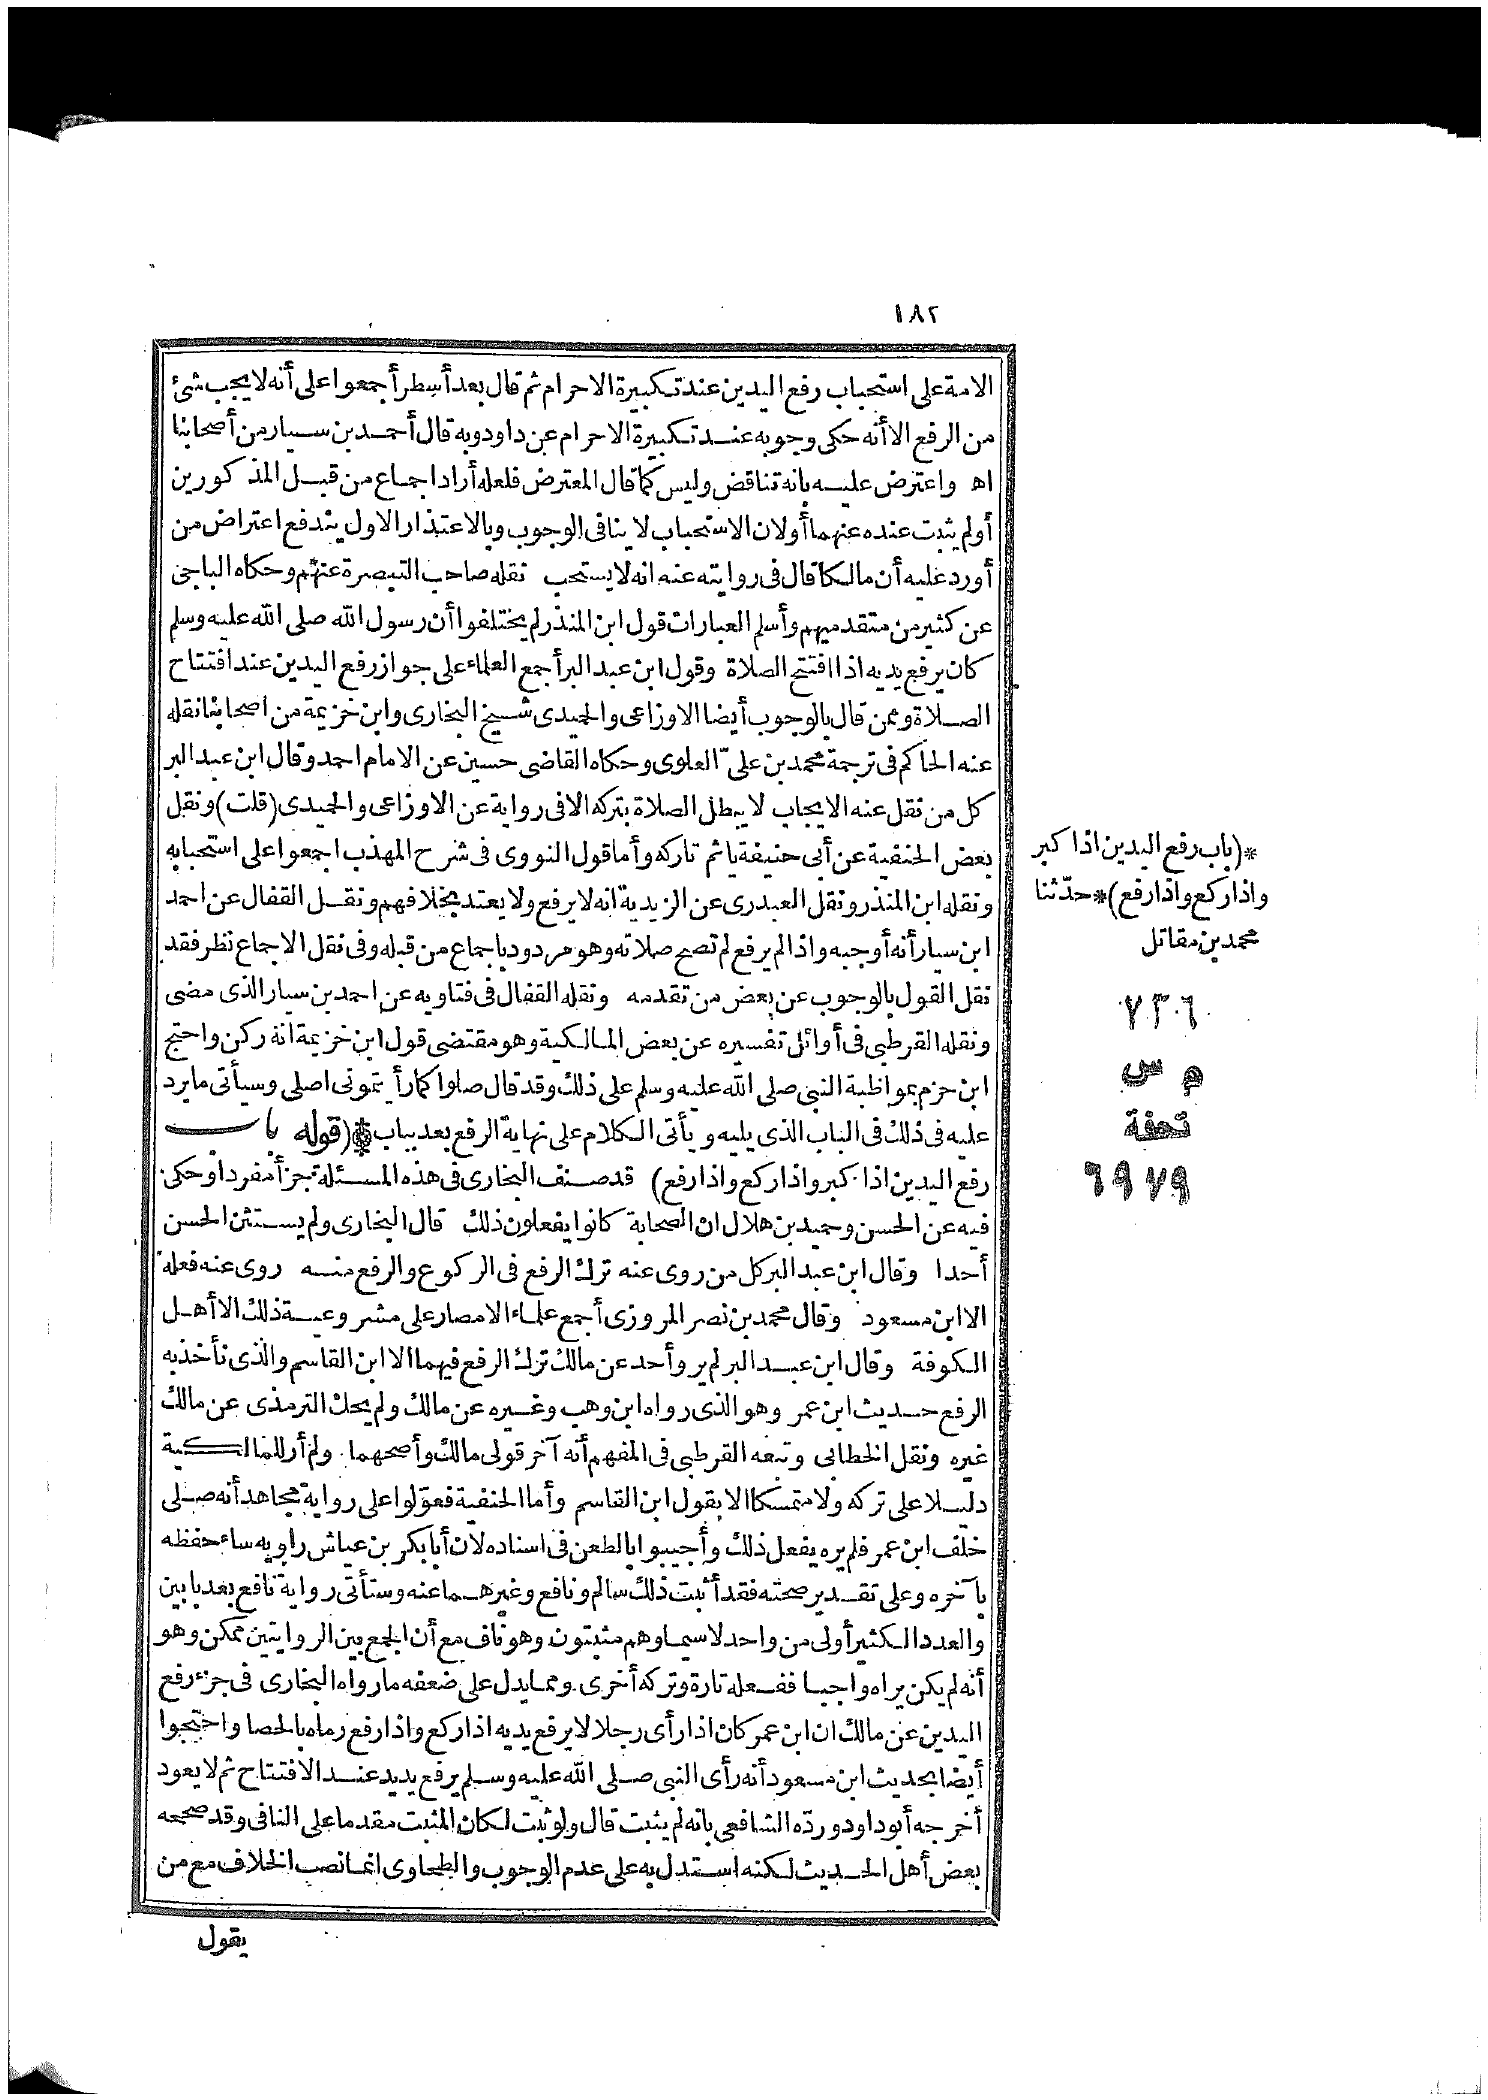 ١٨٢
الامة على استحباب رفع اليدين عند تكبيرة الاحرام ثم قال بعد أسطر أجمعوا على أنه لا يجب شئ
من الرفع الا أنه حكى وجوبه عند تكبيرة الاحرام عن داود وبه قال أحمد بن سيار من أصحابنا
اه واعترض عليه بانه تناقض وليس كما قال المعترض فلعله أراد اجماع من قبل المذكورين
أولم يثبت عنده عنهما أولان الاستحباب لا ينافى الوجوب وبالاعتذار الاول يندفع اعتراض من
أورد عليه أن مالكا قال فى روايته عنه انه لا يستحب نقله صاحب التبصرة عنهم وحكاه الباجى
عن كثير من متقدميهم وأسلم العبارات قول ابن المنذر لم يختلفوا أن رسول الله صلى الله عليه وسلم
كان يرفع يديه اذا افتتح الصلاة وقول ابن عبد البر أجمع العلماء على جواز رفع اليدين عند افتتاح
الصلاة وممن قال بالوجوب أيضا الاوزاعى والحميدى شيخ البخارى وابن خزيمة من أصحابنا نقله
عنه الحاكم فى ترجمة محمد بن علىّ العلوى وحكاه القاضى حسين عن الامام احمد وقال ابن عبد البر
كل من نقل عنه الايجاب لا يبطل الصلاة بتركه الا فى رواية عن الاوزاعى والحميدى (قلت) ونقل
بعض الحنفية عن أبى حنيفة يأثم تاركه وأما قول النووى فى شرح المهذب اجمعوا على استحبابه
ونقله ابن المنذر ونقل العبدرى عن الزيدية انه لا يرفع ولا يعتد بخلافهم ونقل القفال عن احمد
ابن سيار أنه أوجبه واذا لم يرفع لم تصح صلاته وهو مردود باجماع من قبله وفى نقل الاجماع نظر فقد
نقل القول بالوجوب عن بعض من تقدمه ونقله القفال فى فتاويه عن احمد بن سيار الذى مضى
ونقله القرطبى فى أوائل تفسيره عن بعض المالكية وهو مقتضى قول ابن خزيمة انه ركن واحتج
ابن حزم بمواظبة النبى صلى الله عليه وسلم على ذلك وقد قال صلوا كما رأيتمونى اصلى وسيأتى ما يرد
عليه فى ذلك فى الباب الذى يليه ويأتى الكلام على نهاية الرفع بعد بباب *(قوله باب
رفع اليدين اذا كبر واذا ركع واذا رفع) قد صنف البخارى فى هذه المسئلة جزأ مفردا وحكى
فيه عن الحسن وحميد بن هلال ان الصحابة كانوا يفعلون ذلك قال البخارى ولم يستثن الحسن
أحدا وقال ابن عبد البر كل من روى عنه ترك الرفع فى الركوع والرفع منه روى عنه فعله
الا ابن مسعود وقال محمد بن نصر المروزى أجمع علماء الامصار على مشروعية ذلك الا أهل
الكوفة وقال ابن عبد البر لم يرو أحد عن مالك ترك الرفع فيهما الا ابن القاسم والذى نأخذ به
الرفع حديث ابن عمر وهو الذى رواه ابن وهب وغيره عن مالك ولم يحك الترمذى عن مالك
غيره ونقل الخطابى وتبعه القرطبى فى المفهم أنه آخر قولى مالك وأصحهما ولم أر للمالكية
دليلا على تركه ولا متمسكا الا بقول ابن القاسم وأما الحنفية فعوّلوا على رواية مجاهد أنه صلى
خلف ابن عمر فلم يره يفعل ذلك وأجيبوا بالطعن فى اسناده لان أبا بكر بن عياش راويه ساء حفظه
بآخره وعلى تقدير صحته فقد أثبت ذلك سالم ونافع وغيرهما عنه وستأتى رواية نافع بعد بابين
والعدد الكثير أولى من واحد لاسيما وهم مثبتون وهو ناف مع أن الجمع بين الروايتين ممكن وهو
أنه لم يكن يراه واجبا ففعله تارة وتركه أخرى ومما يدل على ضعفه ما رواه البخارى فى جزء رفع
اليدين عن مالك ان ابن عمر كان اذا رأى رجلا لا يرفع يديه اذا ركع واذا رفع رماه بالحصا واحتجوا
أيضا بحديث ابن مسعود أنه رأى النبى صلى الله عليه وسلم يرفع يديه عند الافتتاح ثم لا يعود
أخرجه أبو داود ورده الشافعى بانه لم يثبت قال ولو ثبت لكان المثبت مقدما على النافى وقد صححه
بعض أهل الحديث لكنه استدل به على عدم الوجوب والطحاوى انما نصب الخلاف مع من
يقول
*(باب رفع اليدين اذا كبر
واذا ركع واذا رفع)* حدّثنا
محمد بن مقاتل
٧٣٦
م س
تحفة
٦٩٧٩